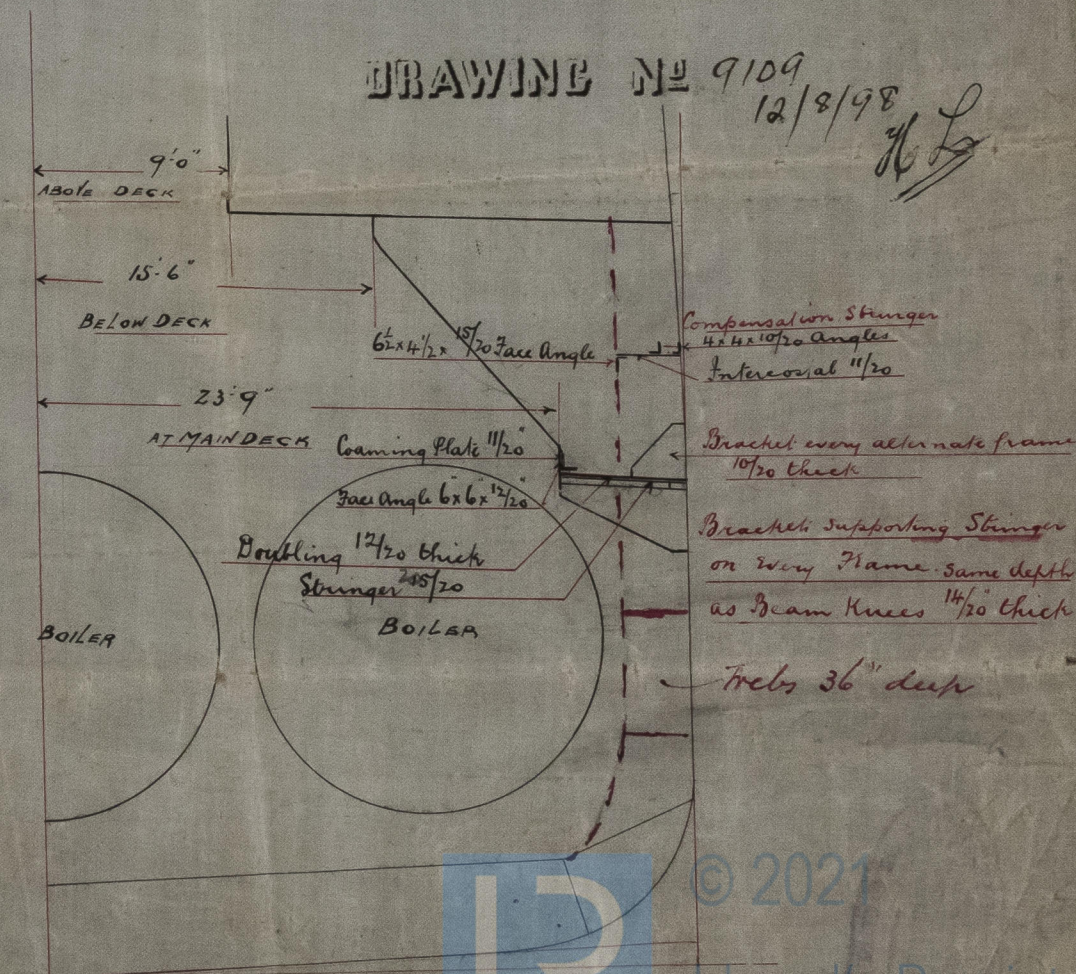 DRAWING Nº 9109
12/8/98
9'-0"
ABOVE DECK
15'-6"
BELOW DECK
6½ x 4½ x 15/20 Face Angle
Compensation Stringer
4 x 4 x 10/20 Angles
Intercostal 11/20
23'-9"
AT MAIN DECK
Coaming Plate 11/20"
Face Angle 6" x 6" x 12/20"
Doubling 12/20 thick
Stringer 15/20
Bracket every alternate frame
10/20 thick
Brackets supporting Stringer
on Every Frame. same depth
as Beam Knees 14/20" thick
BOILER
BOILER
Webs 36" deep
© 2021